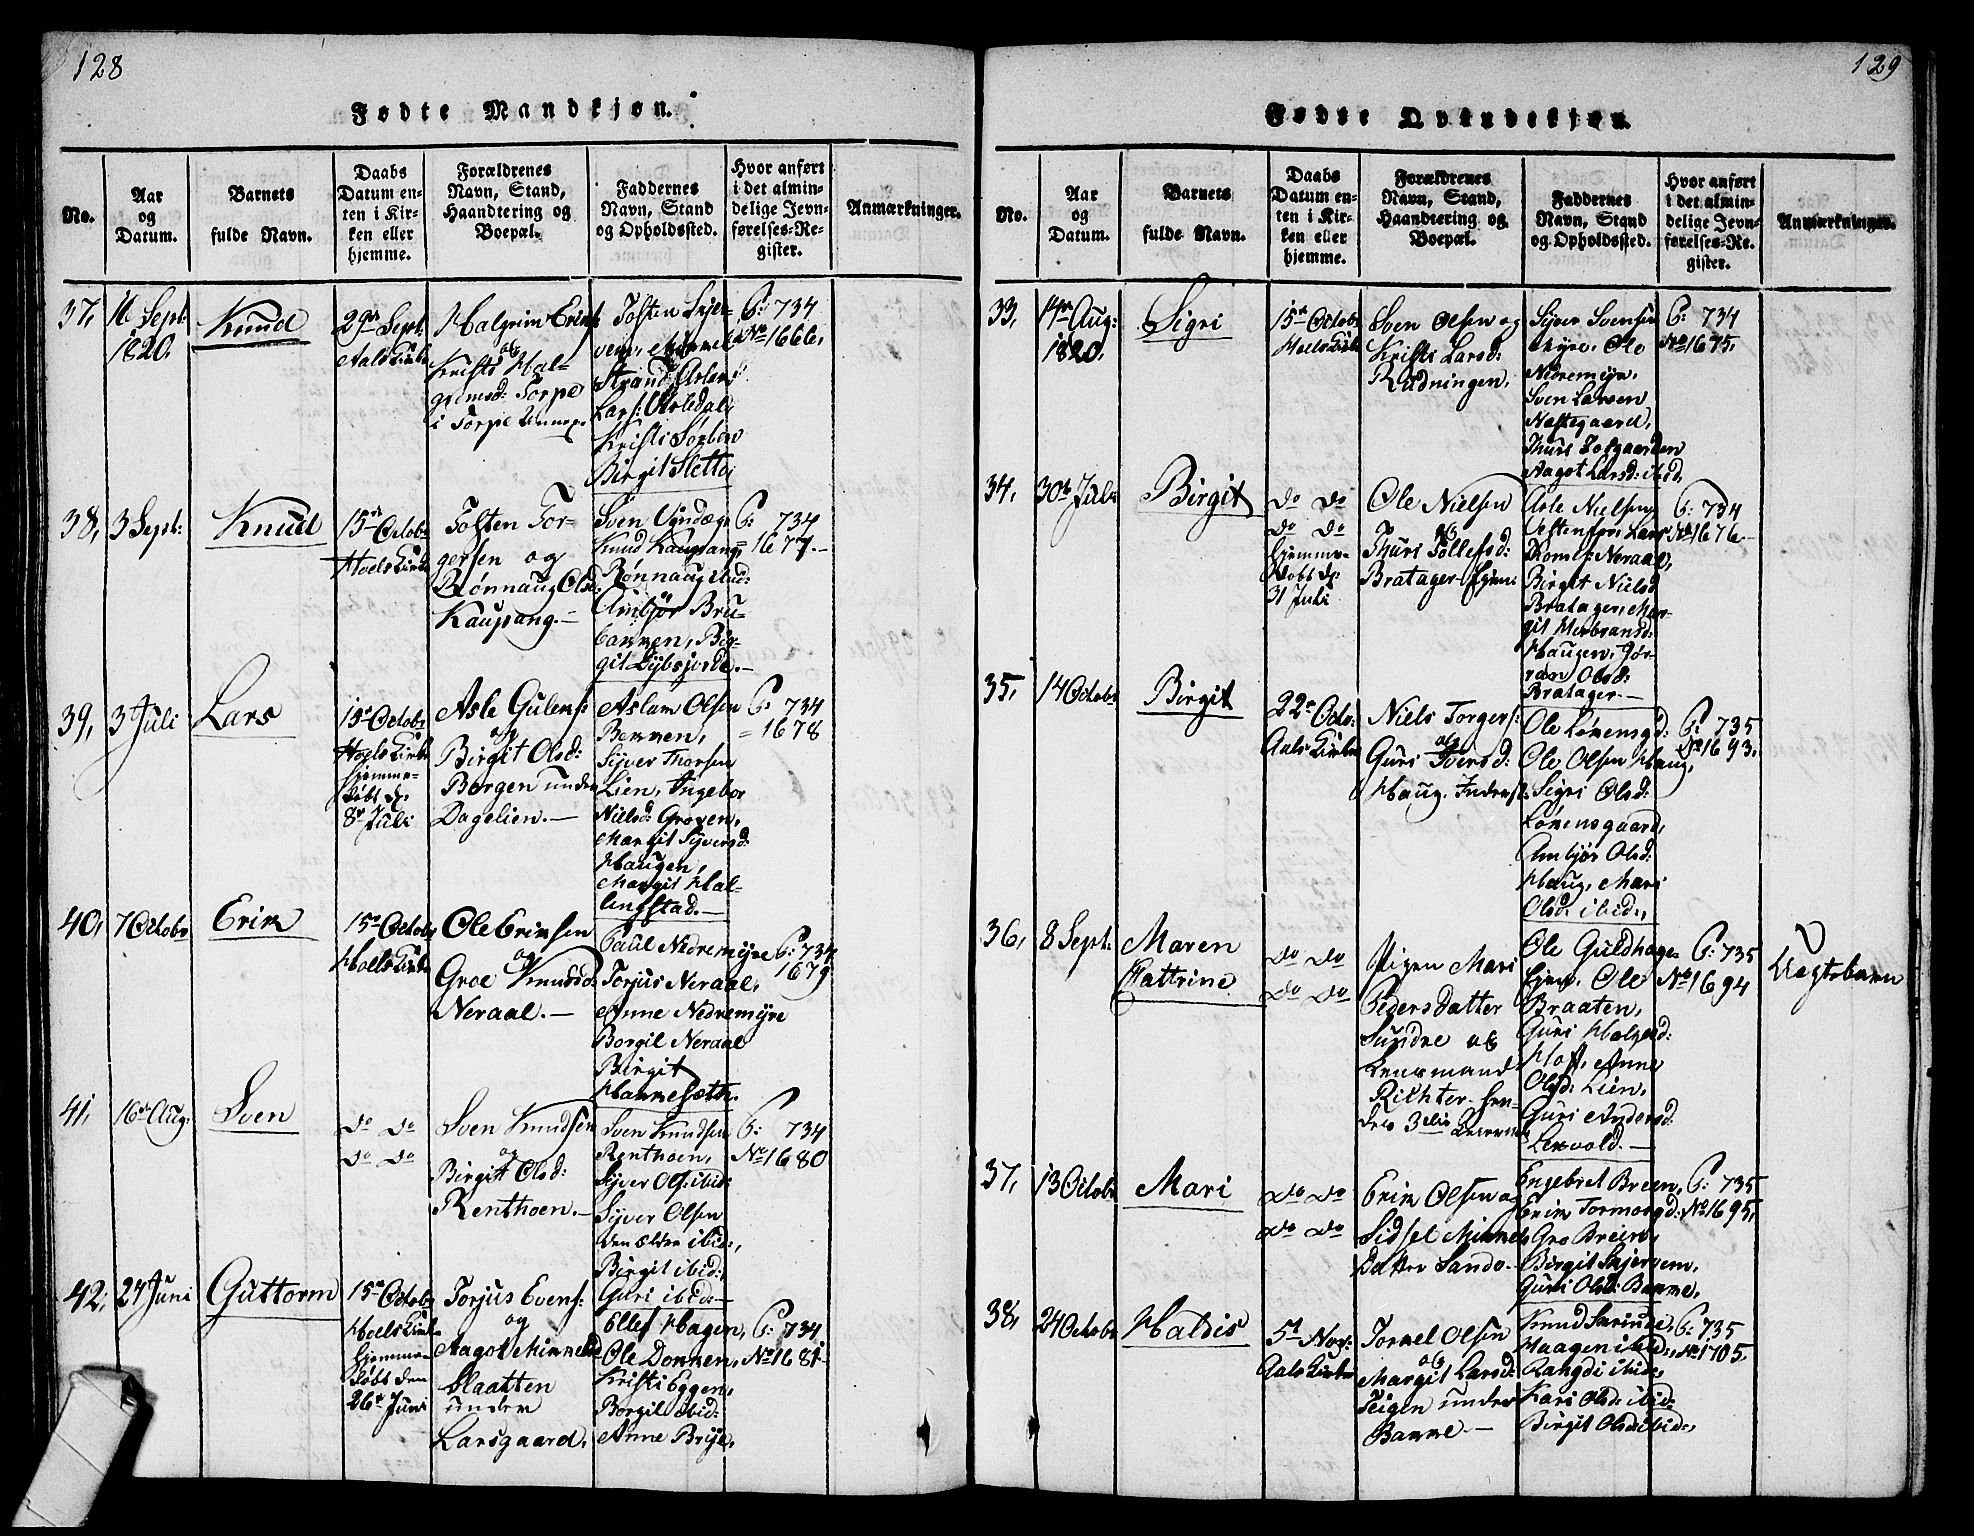 128
Fødte Mandkjøn.
No.
Aar og Datum.
Barnets fulde Navn.
Daabs Datum enten i Kirken eller hjemme.
Forældrenes Navn, Stand, Haandtering og Boepæl.
Faddernes Navn, Stand og Opholdssted.
Hvor anført i det almindelige Jevnførelses-Register.
Anmærkninger.
37,
16 Sept:
1820.
Knud
29de Sept.
Aals Kirke
Halgrim Eriks:
og
Kristi Hal-
grimsd: Torpe
i Torpe
Tosten Skjer-
ven,
Strand, Aslac
Lars:
Kristi
Birgit Sletto
P: 734
No 1666,
38,
3 Sept:
Knud
15de Octobr
Hoels Kirke
Tosten Tor-
gersen og
Rønnaug Olsd:
Kaupang.-
Sven
Knud Kaupang,
Rønnaug ibid:
Ambjør Bru-
bakken, Bir-
git
P: 734
= 1677.-
39,
3 Juli
Lars
15de Octobr
Hoels Kirke
hjemme-
døbt d.
8de Juli
Asle Gulens:
og
Birgit Olsd:
Borgen under
Dagelien.-
Aslam Olsen
Bekken,
Syver Thorsen
Lien, Ingebor
Nielsd: Groven,
Margit Syversd:
Haugen,
Margit Hal-
lingstad.-
P: 734
= 1678
40,
7 Octobr
Erik
15de Octobr
Hoels Kirke
Ole Eriksen
og
Groe Knudsd:
Neraal.-
Paul Nedremyre
Torjus Neraal,
Anne Nedremyre
Borgil Neraal
Birgit
P: 734
1679
41,
16de Aug:
Sven
do do
do do
Sven Knudsen
og
Birgit Olsd:
Renthoen.-
Sven Knudsen
Renthoen,
Syver Ols: ibid:
Syver Olsen
den ældre ibid:,
Birgit ibid:
Guri ibid:-
P: 734
No 1680
42,
24 Juni
Guttorm
15de Octobr
Hoels Kirke
hjemme-
døbt den
26de Juni
Torjus Evens:
og
Aagot
Slaatten
under
Larsgaard,
Ellef Hagen,
Ole Dokken,
Kristi Eggen,
Borgil ibid:
Anne Brye,
P: 734
No 1681-
129
Fødte Qvindekjøn.
No.
Aar og Datum.
Barnets fulde Navn.
Daabs Datum enten i Kirken eller hjemme.
Forældrenes Navn, Stand, Haandtering og Boepæl.
Faddernes Navn, Stand og Opholdssted.
Hvor anført i det almindelige Jevnførelses-Register.
Anmærkninger.
33,
14de Aug:
1820,
Sigri
15de Octobr
Hoels Kirke
Sven Olsen og
Kristi Larsd:
Rudningen,
Syver Svensen
Myre, Ole
Nedremyr,
Sven Larsen
Nestegaard,
Thuri
Aagot Larsd: ibid,
P: 734
No 1675,
34,
30te Juli
Birgit
do do
do do
hjemme-
døbt d.
31 Juli
Ole Nielsen
og
Thuri Tollefsd:
Bratager
Asle Nielsen
Lars
Neraal,
Birgit Nielsd
Bratager, Mar-
git Herbransd:
Haugen, Jør-
ran Olsd:
Bratager.-
P: 734
No 1676-
35,
14 Octobr
Birgit
22de Octo:
Aals Kirke
Niels Torgers:
og
Guri Iversd:
Haug,
Ole Løkensgd:
Ole Olsen Haug,
Sigri Olsd:
Løkensgaard,
Ambjør Olsd:
Haug, Mari
Olsd: ibid:,
P: 735
No 1693,
36,
8 Sept:
Maren
Cattrine
do do
do do
Pigen Mari
Pedersdatter
Sundre og
Lensmand
Richter
Ole Guldhagen
Ole
Braaten,
Guri
Hoff, Anne
Olsd: Lien,
Guri Andersd:
P: 735
No 1694
Uægtebarn
37,
13 Octobr
Mari
do do
do do
Erik Olsen og
Sidsel Mikkels
Datter Sando-
Engebret Breen,
Erik Tormosgd:
Gro Breien,
Birgit Skjerven,
Guri Olsd: Bakke,
P: 735
No 1695,
38,
24 Octobr
Halvis
5te Nov:
Aals Kirke
Torkel Olsen
og
Margit Larsd:
Teigen under
Bakke-
Knud
Haagen ibid:,
Rangdi ibid:
Kari Olsd: ibid:
Birgit Olsd ibid:,
P: 735
No 1705,